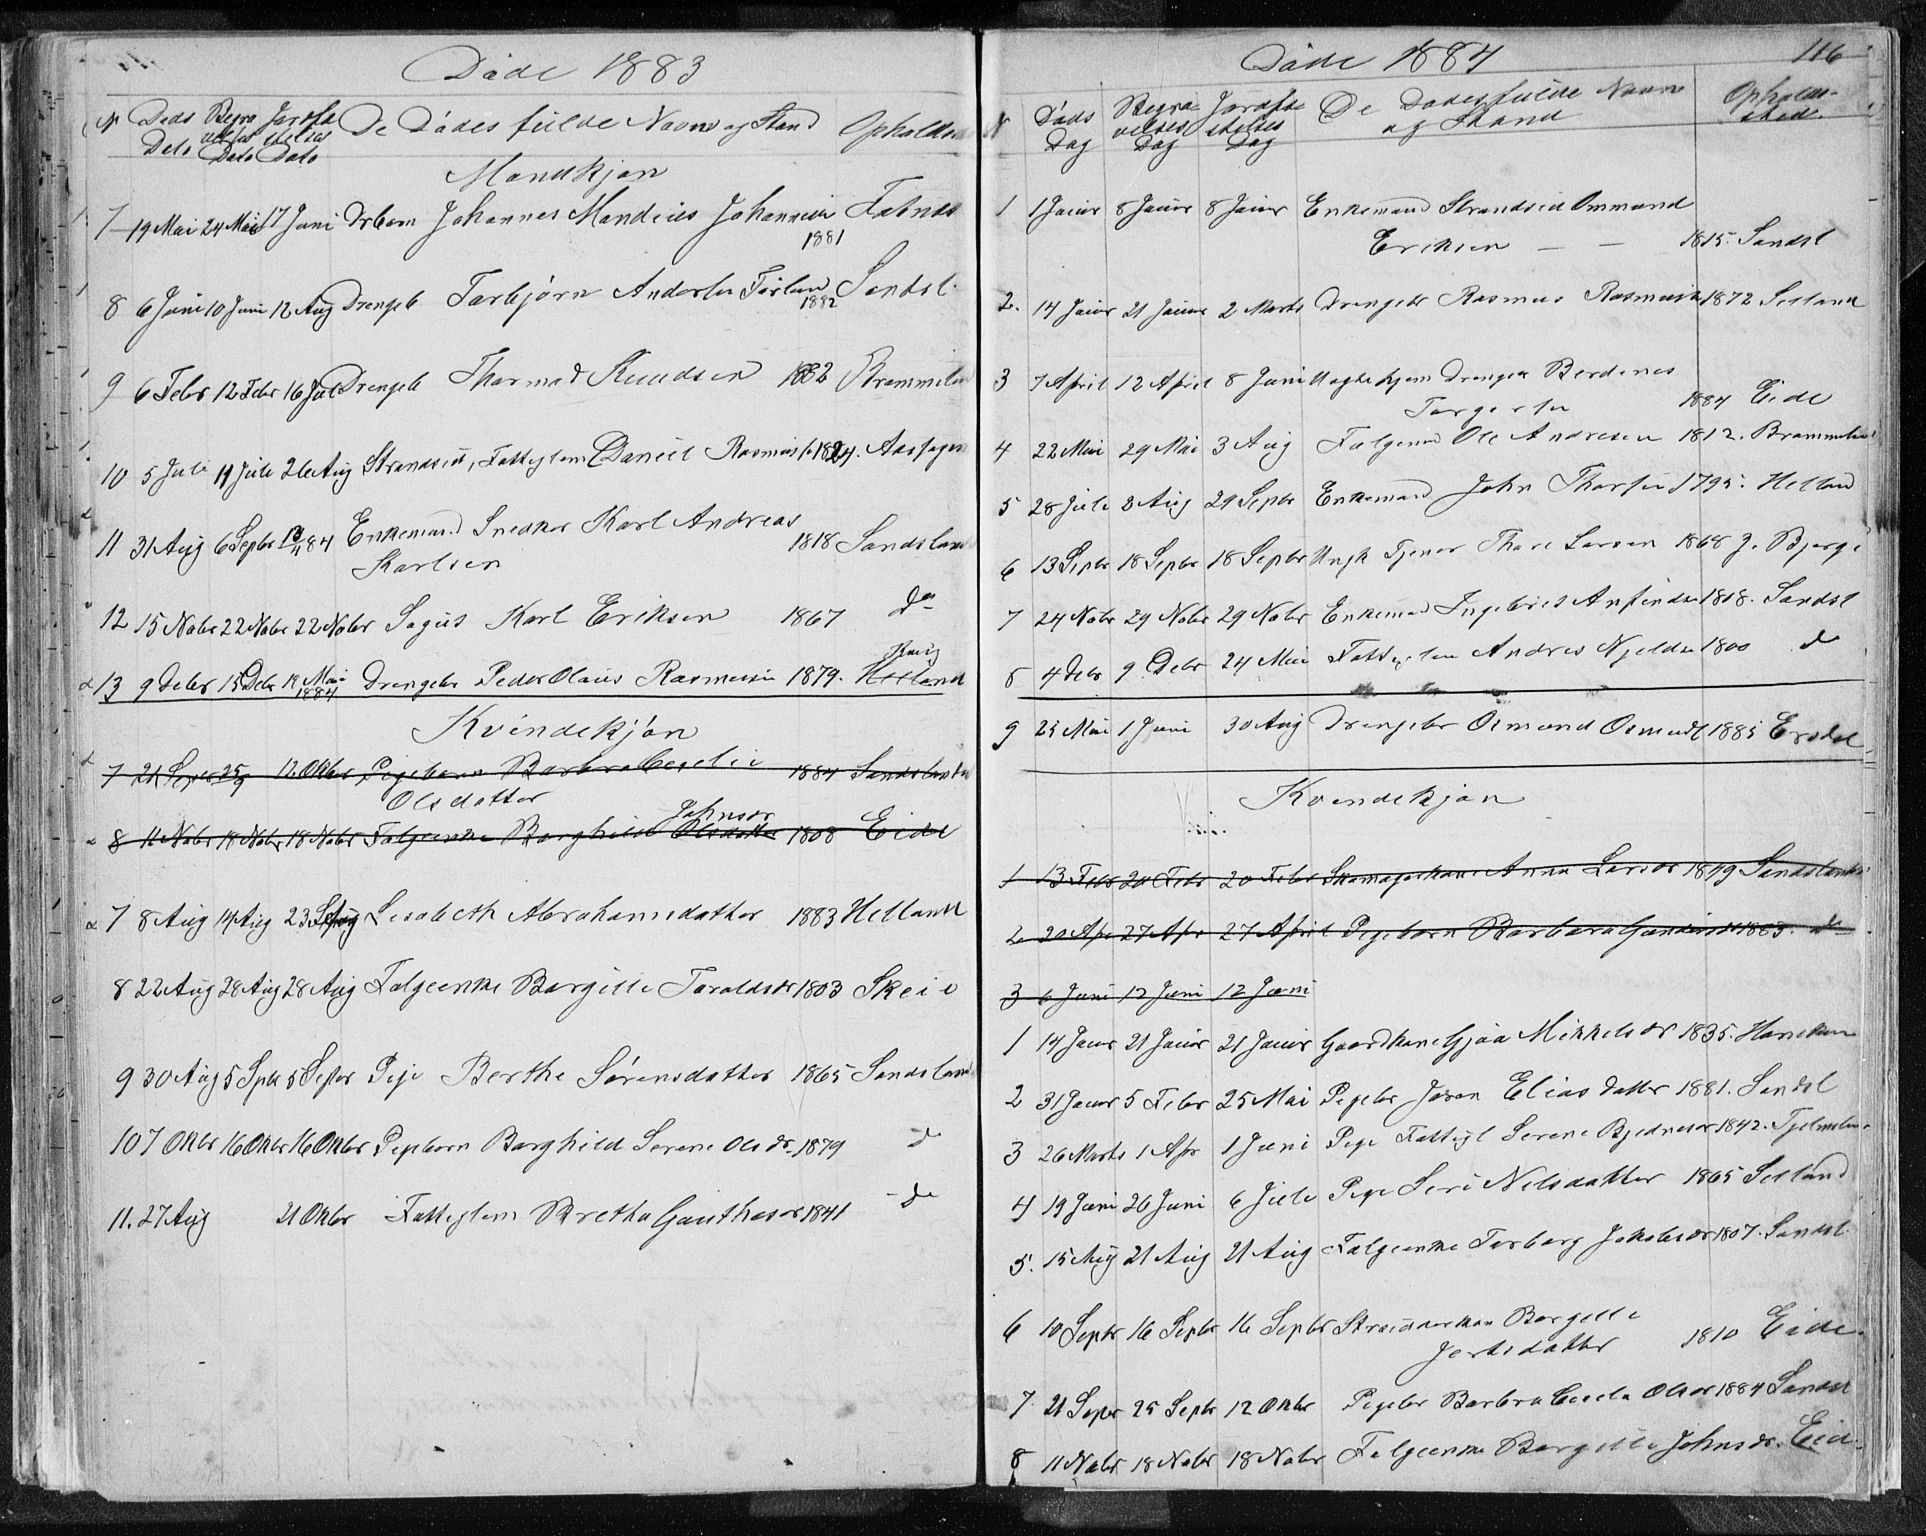 Døde 1883
N Døds Dato Begravelses Dato Jordfæstelses Dato De Dødes fulde Navne og Stand Opholds
Mandkjøn
7 19 Mai 24 Mai 17 Juni Drbarn Johannes Mandius Johannesen
1881
8 6 Juni 10 Juni 12 Aug Drengeb Torbjørn Andersen 1882 Sandsl.
9 6 Febr 12 Febr 16 Juli Drengeb Thormod Knudsen 1882
10 5 Juli 11 Juli 26 Aug Strandsid, Fattiglem Daniel Rasmuss 1824.
11 31 Aug 6 Septbr 13/4 84 Enkemand Snedker Karl Andreas
Karlsen 1818 Sandsland
12 15 Novbr 22 Novbr 22 Novbr Karl Eriksen 1867 do
13 9 Debr 15 Debr 18 Mai 1884 Drengebr Peder Olaus Rasmussen 1879. Helland
Kvindekjøn
7 21 Septbr 25/9 12 Oktbr Pigebarn Barbra Cecelie
Olsdatter 1884 Sandsland
8 11 Novbr 18 Novbr 18 Novbr Følgeenke Borghild Olsdatter Johnsdr 1808 Eide
7 8 Aug 14 Aug 23 Lisabeth Abrahamsdatter 1883 Helland
8 22 Aug 28 Aug 28 Aug Følgeenke Borgille Toroldsdr 1803 Skeie
9 30 Aug 5 Sptb 5 Septbr Pige Berthe Sørensdatter 1865 Sandsland
10 7 Oktbr 16 Oktbr 16 Oktbr Pigebarn Borghild Serene Olsdr. 1879 d
11. 27 Aug 21 Oktbr Fattiglem Bretha Gauthesdr 1841 - do
Døde 1884
116
N Døds Dag Begravelses Dag Jordfæstelses Dag De Dødes fulde Navne og Stand Opholdssted.
1 1 Januar 8 Januar 8 Januar Enkemand Strandsid Ommund
Eriksen — — 1815. Sandsl
2. 14 Januar 21 Januar 2 Marts Drengebr Rasmus Rasmussen 1872 Selland
3 7 April 12 April 8 Juni Uægte hjem Drengeb Berdines
Torgersen 1884 Eide
4 22 Mai 29 Mai 3 Aug Følgemd Ole Andresen 1812.
5 28 Juli 2 Aug 29 Septbr Enkemand John Thorsen 1795. Helland
6 13 Septbr 18 Septbr 18 Septbr Ungk Tjener Thore Larsen 1868 Bjerge
7 24 Novbr 29 Novbr 29 Novbr Enkemand Ingebret Anfindsen 1808. Sandsl
8 4 Debr 9 Debr 24 Mai Fattiglem Andres Njeldsen 1800 do
9 25 Mai 1 Juni 30 Aug Drengebr Osmund Osmunds 1883 Ersdal
Kvindekjøn
1 13 Febr 20 Febr 20 Febr Skomagerkone Anna Larsdr 1849 Sandsland
2 20 Apr 27 Apr 27 April Pigebarn Barbara 1883. do
3 6 Juni 12 Juni 12 Juni
1 14 Januar 21 Januar 21 Januar Gaardkone Gjøa Mikkelsdr 1835.
2 31 Januar 5 Febr 25 Mai Pigebr Joren Eliasdatter 1881. Sandsl
3 26 Marts 1 Apr 1 Juni Pige Fattigl Serene Bjednesdr 1842.
4 19 Juni 26 Juni 6 Juli Pige Seri Nilsdatter 1865 Selland
5. 15 Aug 21 Aug 21 Aug Følgeenke Torborg Jakobsdr 1807. Sandsl.
6 10 Septbr 16 Septbr 16 Septbr Borgille
1810 Eide.
7 21 Septbr 25 Septbr 12 Oktbr Pigebr Barbra Cecelie Olsdr 1884 Sandsl
8 11 Novbr 18 Novbr 18 Novbr Følgeenke Borgille Johnsdr. Eide.